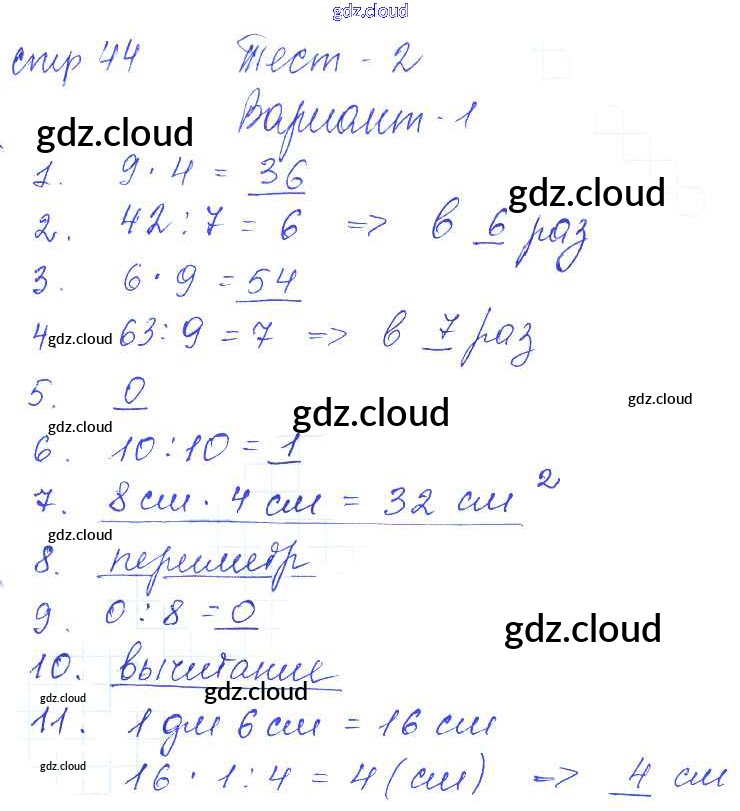 gdz.cloud
стр 44 Тест - 2
Вариант - 1
gdz.cloud
1. 9 · 4 = 36
gdz.cloud
2. 42 : 7 = 6 => в 6 раз
3. 6 · 9 = 54
4. gdz.cloud 63 : 9 = 7 => в 7 раз
5. 0
gdz.cloud gdz.cloud gdz.cloud
6. 10 : 10 = 1
7. 8 см · 4 см = 32 см²
gdz.cloud
8. периметр
9. 0 : 8 = 0
gdz.cloud
10. вычитание
gdz.cloud gdz.cloud
11. 1 дм 6 см = 16 см
gdz.cloud 16 · 1 : 4 = 4 (см) => 4 см